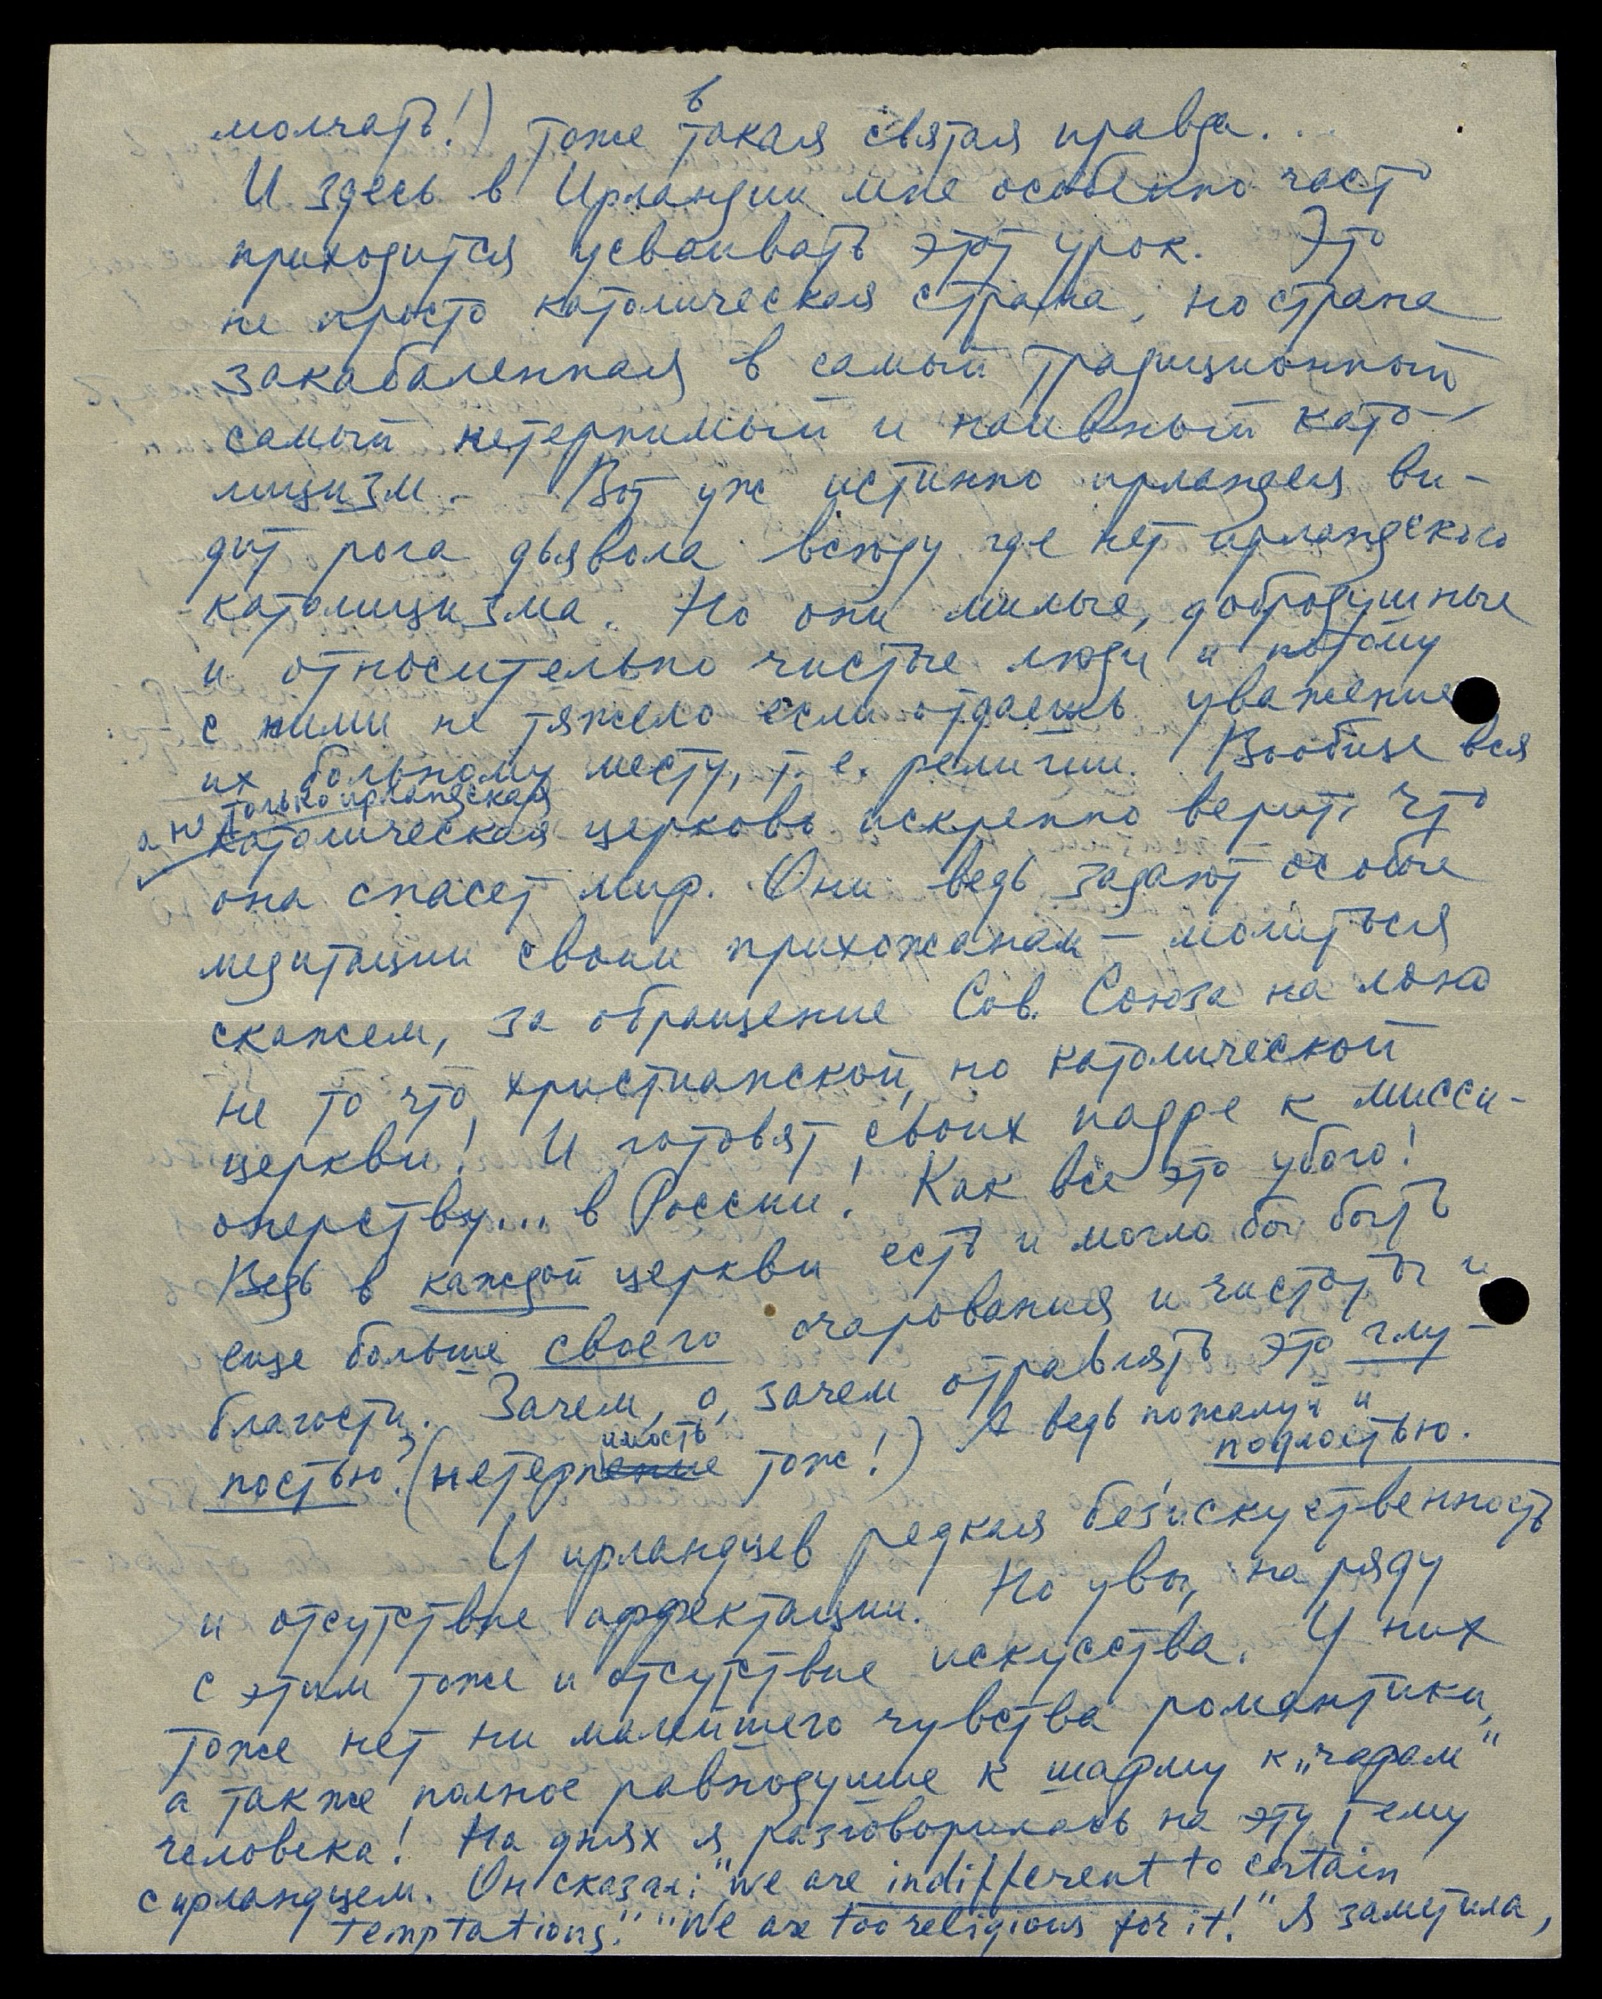 молчать!) тоже в такая святая правда...
И здесь в Ирландии мне особенно часто
приходится усваивать этот урок. Это
не просто католическая страна, но страна
закабаленная в самый традиционный
самый нетерпимый и наивный като-
лицизм. Вот уж истинно ирландец ви-
дит рога дьявола всюду где нет ирландского
католицизма. Но они милые, добродушные
и относительно чистые люди и потому
с ними не тяжело если отдаешь уважение
их больному месту, т. е. религии. Вообще вся
а не только ирландская
католическая церковь искренно верит, что
она спасет мир. Они ведь задают особые
медитации своим прихожанам – молиться
скажем, за обращение Сов. Союза на лоно
не то что христианской, но католической
церкви! И готовят своих падре к мисси-
онерству... в России! Как все это убого!
Ведь в каждой церкви есть и могло бы быть
еще больше своего очарования и чистоты и
благости. Зачем, о, зачем отравлять это глу-
постью? (нетерпимость тож!) А ведь пожалуй и
подлостью.
У ирландцев редкая безискуственность
и отсутствие аффектации. Но увы, на ряду
с этим тоже и отсутствие искусства. У них
тоже нет ни малейшего чувства романтики,
а также полное равнодушие к шарму к „чарам"
человека! На днях я разговорилась на эту тему
с ирландцем. Он сказал: "We are indifferent to certain
temptations." "We are too religious for it!" Я заметила,